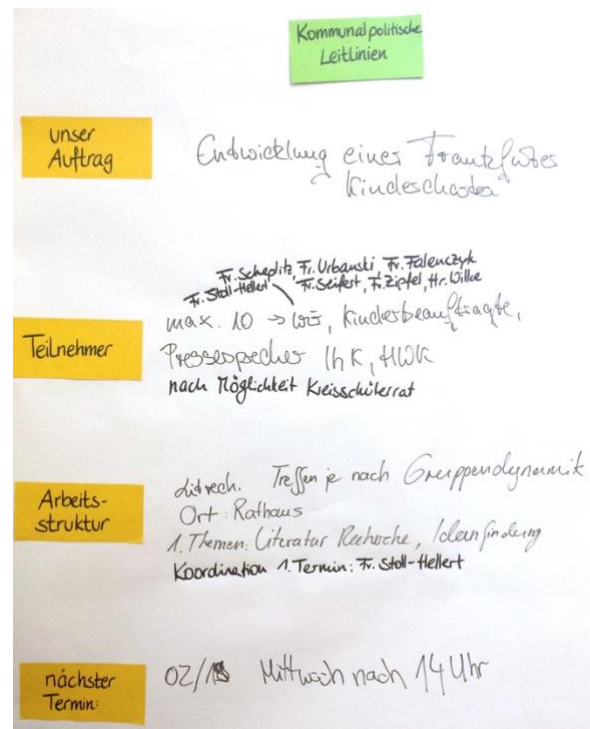 Kommunalpolitische
Leitlinien
unser
Auftrag
Entwicklung einer Frankfurter
Kindercharta
Fr. Scheplitz, Fr. Urbanski, Fr. Falenczyk
Fr. Stoll-Hellert Fr. Seifert, Fr. Zipfel, Hr. Wilke
Teilnehmer
max. 10 → wir, Kinderbeauftragte,
Pressesprecher IhK, HWK
nach Möglichkeit Kreisschülerrat
Arbeits-
struktur
Treffen je nach Gruppendynamik
Ort: Rathaus
1. Themen: Literatur Recherche, Ideenfindung
Koordination 1. Termin: Fr. Stoll-Hellert
nächster
Termin:
02/18 Mittwoch nach 14 Uhr